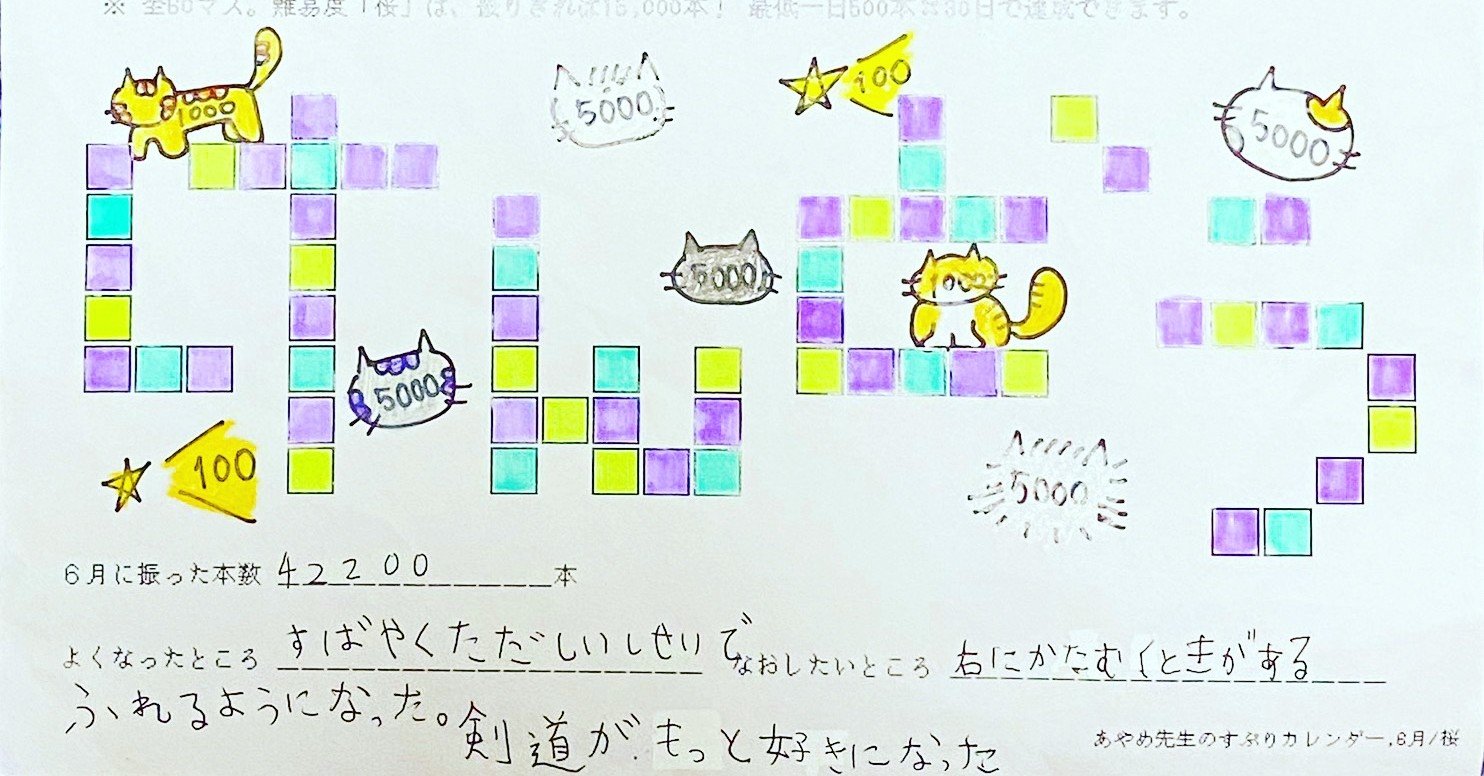 ※ 全60マス。難易度「桜」は、振りきれば15,000本！ 最低一日500本☆30日で達成できます。
1000
5000
100
5000
5000
5000
100
5000
6月に振った本数 42200 本
よくなったところ すばやくただしいしせいで
ふれるようになった。剣道がもっと好きになった
なおしたいところ 右にかたむくときがある
あやめ先生のすぶりカレンダー,6月/桜